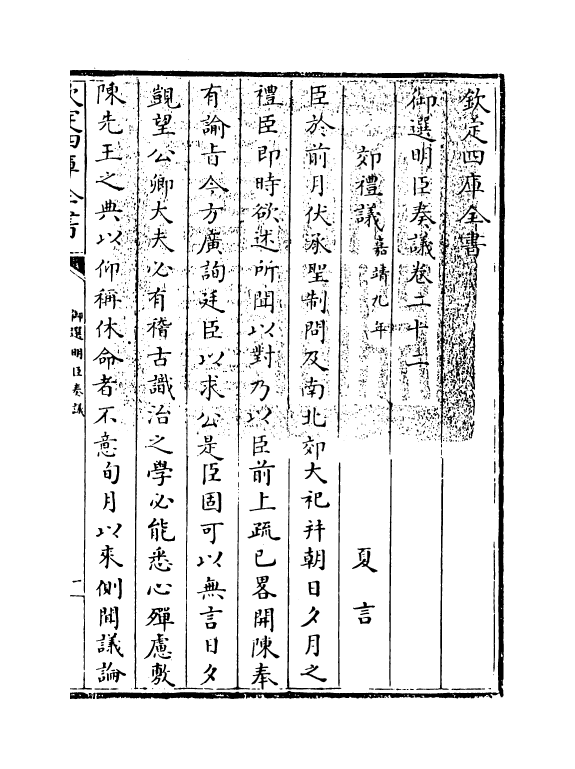 欽定四庫全書
御選明臣奏議卷二十二
郊禮議 嘉靖九年 夏言
臣於前月伏承聖制問及南北郊大祀并朝日夕月之
禮臣即時欲述所聞以對乃以臣前上疏已畧開陳奉
有諭旨今方廣詢廷臣以求公是臣固可以無言日夕
覬望公卿大夫必有稽古識治之學必能悉心殫慮敷
陳先王之典以仰稱休命者不意旬月以來側聞議論
欽定四庫全書
御選明臣奏議